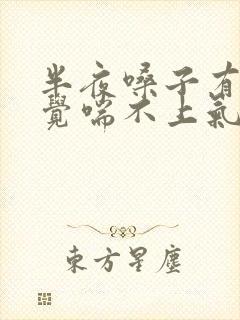 半夜嗓子有
覺喘不上氣
東方星塵